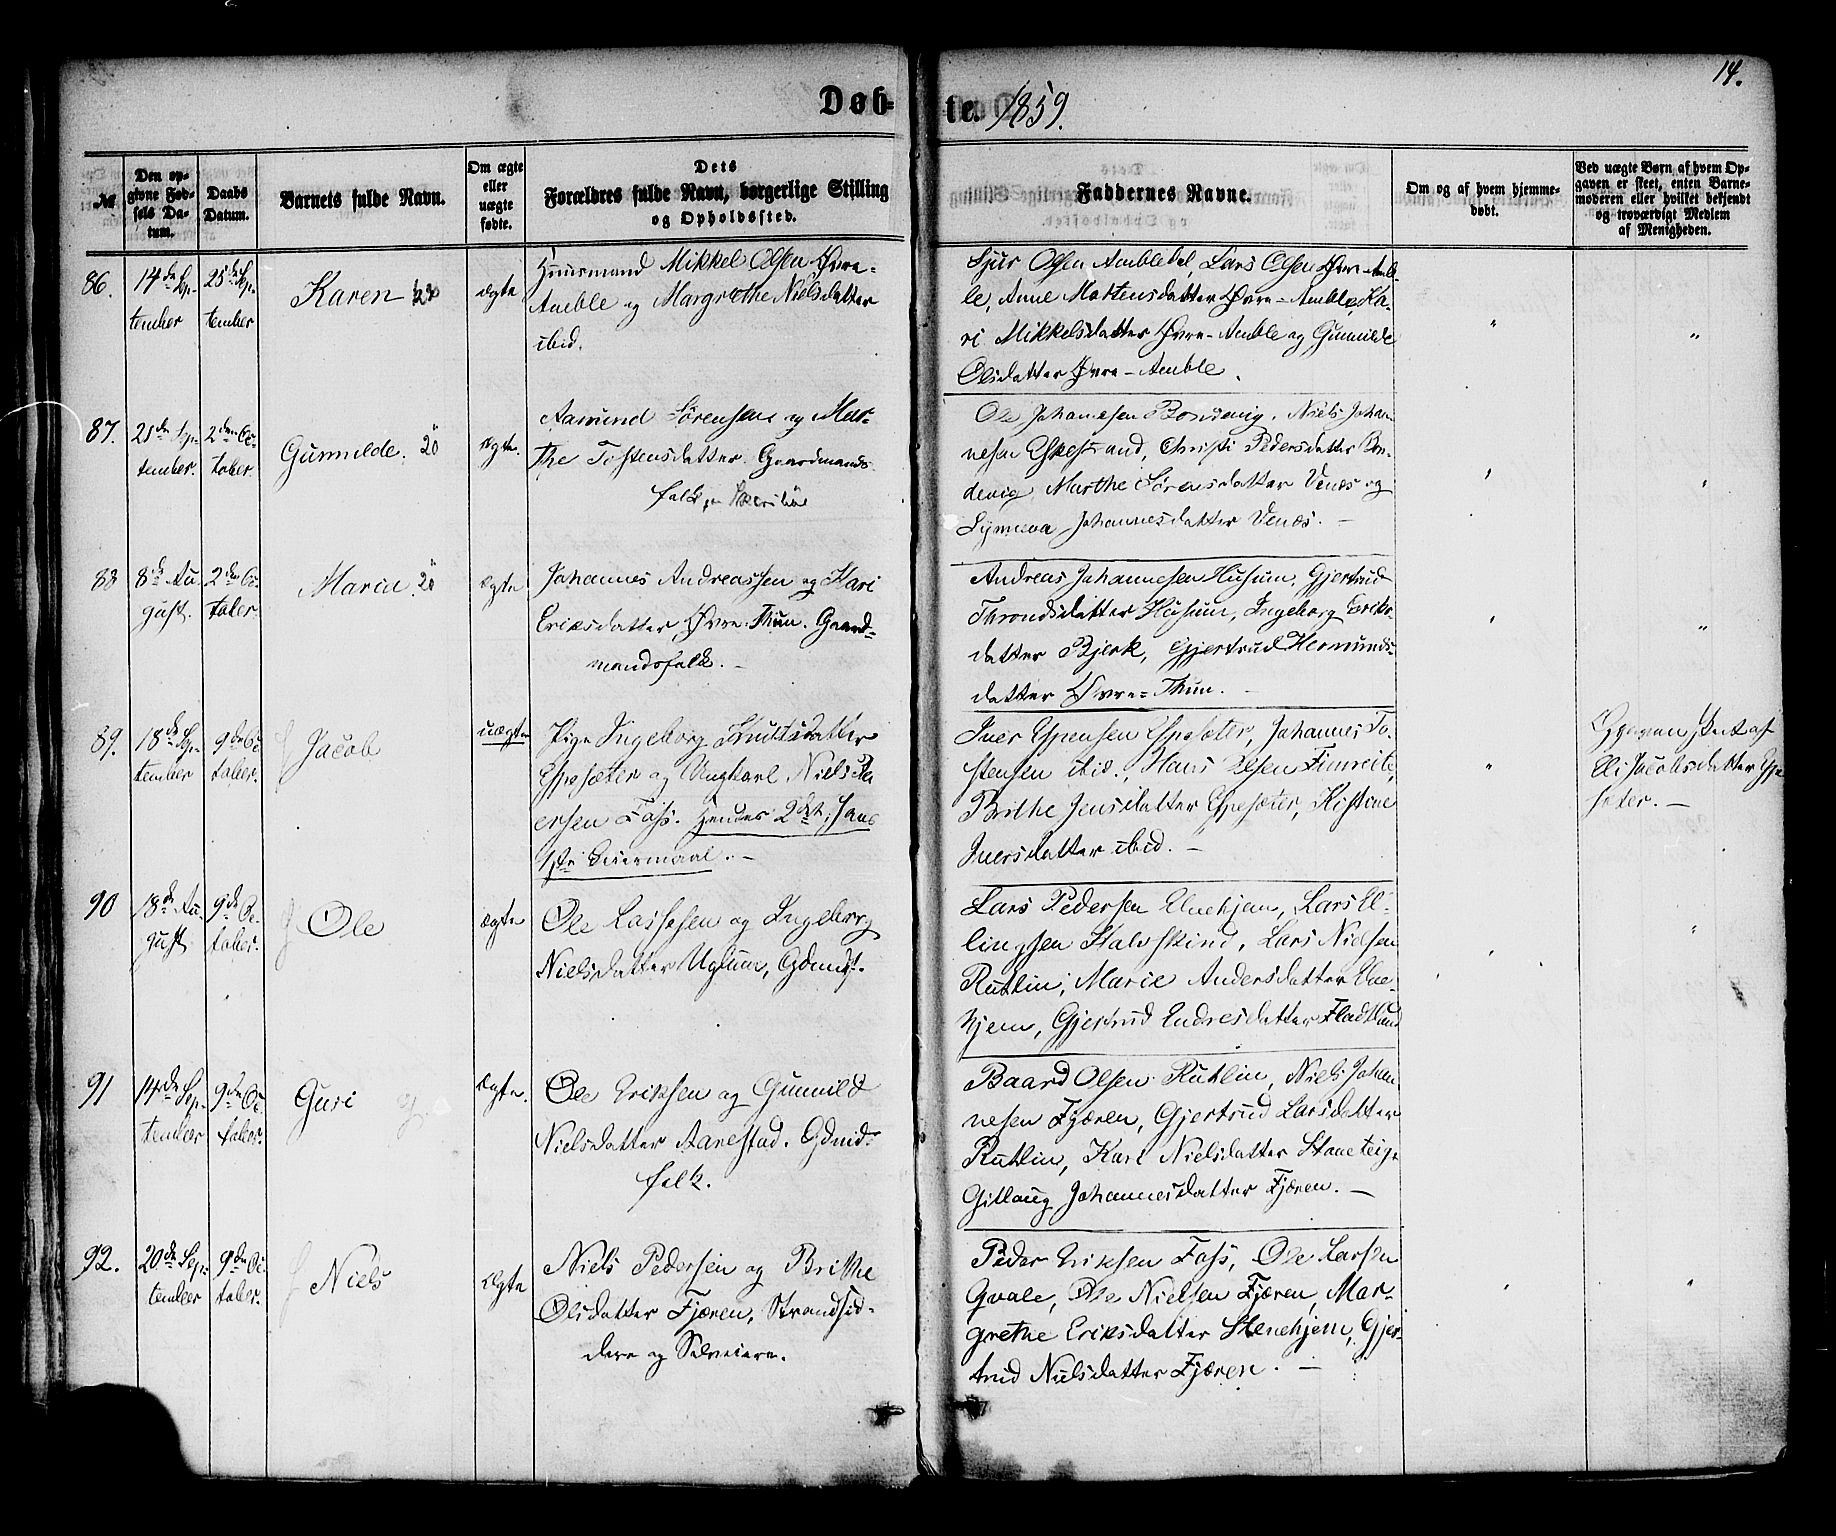 14.
Døb-te. 1859.
№
Den op-
givne Fød-
sels Da-
tum.
Daabs
Datum.
Barnets fulde Navn.
Om ægte
eller
uægte
fødte.
Dets
Forældres fulde Navn, borgerlige Stilling
og Opholdssted.
Faddernes Navne.
Om og af hvem hjemme-
døbt.
Ved uægte Børn af hvem Op-
gaven er skeet, enten Barne-
moderen eller hvilket bekjendt
og troværdigt Medlem
af Menigheden.
86.
14de Sep-
tember
25de Sep-
tember
Karen
ægte
Huusmand Mikkel Olsen Øvre-
Amble og Margrethe Nielsdatter
ibid.
Sjur Olsen Ambledal, Lars Olsen Øvre-Amb-
le, Anne Mortensdatter Øvre-Amble, Ka-
ri Mikkelsdatter Øvre-Amble og Gunnilde
Olsdatter Øvre-Amble.
"
"
87.
21de Sep-
tember.
2den Oc-
tober.
Gunnilde. 20
Ægte.
Aamund Sörensen og Mar-
the Tostensdatter. Gaardmands-
folk
Ole Johannesen Bondevig, Niels Johan-
nesen Eskestrand, Christi Pedersdatter Bon-
devig Marthe Sörensdatter Venæs og
Synneva Johannesdatter Venæs. —
88
8de Au-
gust.
2den Oc-
tober.
Maria. 20
Ægte
Johannes Andreassen og Kari
Eriksdatter Øvre-Thun. Gaard-
mandsfolk. —
Andreas Johannesen Husum, Gjertrud
Throndsdatter Husum, Ingeborg Eriks-
datter Bjerk, Gjertrud Hermunds-
datter Øvre-Thun. —
"
89.
18de Sep-
tember
9de Oc-
tober.
Jacob
uægte
Pige Ingeborg Knutsdatter
Espesæter og Ungkarl Niels Pe
ersen Fass. Hendes 2det, hans
1ste Leiermaal. —
Iver Espensen Espesæter, Johannes To-
stensen ibid., Hans Olsen Fimreite,
Brithe Jensdatter Espesæter, Kistine
Iversdatter ibid. —
"
Opgaven skeet af
Eli Jacobsdatter Espe
sæter. —
90
18de Au-
gust
9de Oc-
tober.
Ole
ægte
Ole Lassesen og Ingeborg
Nielsdatter Uglum, Gdmdsf.
Lars Pedersen Elvehjem, Lars El-
lingsen Kalvskind, Lars Nielsen
Rutlin, Marie Andersdatter Elve-
hjem, Gjertrud Endresdatter Fladtland
"
91
14de Sep-
tember
9de Oc-
tober.
Guri
Ægte.
Ole Eriksen og Gunnild
Nielsdatter Aarestad. Gdmds-
folk.
Baard Olsen Rutlin, Niels Johan-
nesen Fjæren, Gjertrud Larsdatter
Rutlin, Kari Nielsdatter Staaeteig,
Gitlaug Johannesdatter Fjæren. —
92.
20de Sep-
tember
9de Oc-
tober.
Niels
Ægte
Niels Pedersen og Brithe
Olsdatter Fjæren, Strandsid-
dere og Selveiere.
Peder Eriksen Fass, Ole Larsen
Qvale, Ole Nielsen Fjæren, Mar-
grethe Eriksdatter Stenehjem, Gjer-
trud Nielsdatter Fjæren. —
"